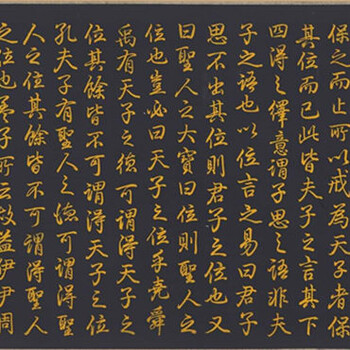 保之而止所以戒為天子者保
其位而已此皆夫子之言其下
四得之繹意謂子思之語非夫
子之語也以位言之易曰君子
思不出其位則君子之位也又
曰聖人之大寶曰位則聖人之
位也豈必曰天子之位乎堯舜
禹有天子之德可謂得天子之
位其餘皆不可謂得天子之位
孔夫子有聖人之德可謂得聖
人之位其餘皆不可謂得聖人
之位也孟子所云啟益伊尹周